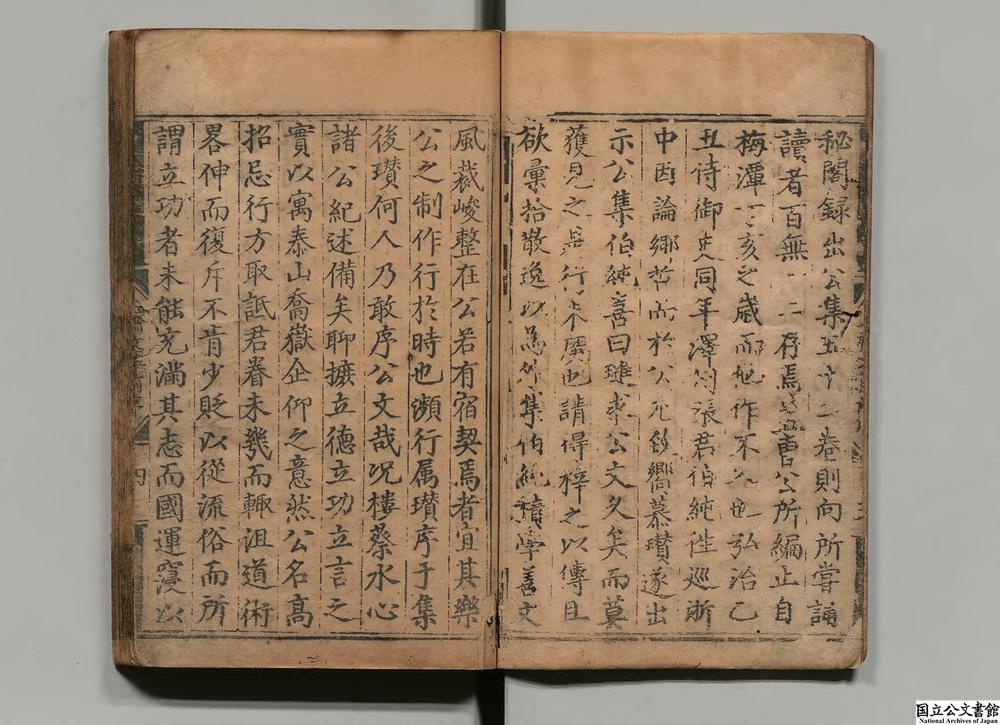 秘閣録出公集五十二卷則向所嘗誦
讀者百無一二存焉盖曹公所編止自
梅潭丁亥之歳而他作不入也弘治乙
丑侍御史同年澤州張君伯純徃巡浙
中因論郷哲而於公尤欽嚮慕瓉遂出
示公集伯純喜曰璡求公文久矣而莫
獲見之且行本廣也請得梓之以傳且
欲彙拾散逸以為外集伯純積學善文
風裁峻整在公若有宿契焉者宜其樂
公之制作行於時也瀕行属瓉序于集
後瓉何人乃敢序公文哉况樓蔡水心
諸公紀述備矣聊摭立德立功立言之
實以寓泰山喬嶽企仰之意然公名高
招忌行方取詆君眷未幾而輒沮道術
畧伸而復斥不肯少貶以從流俗而所
謂立功者未能充滿其志而國運寖以
四
三
国立公文書館
National Archives of Japan